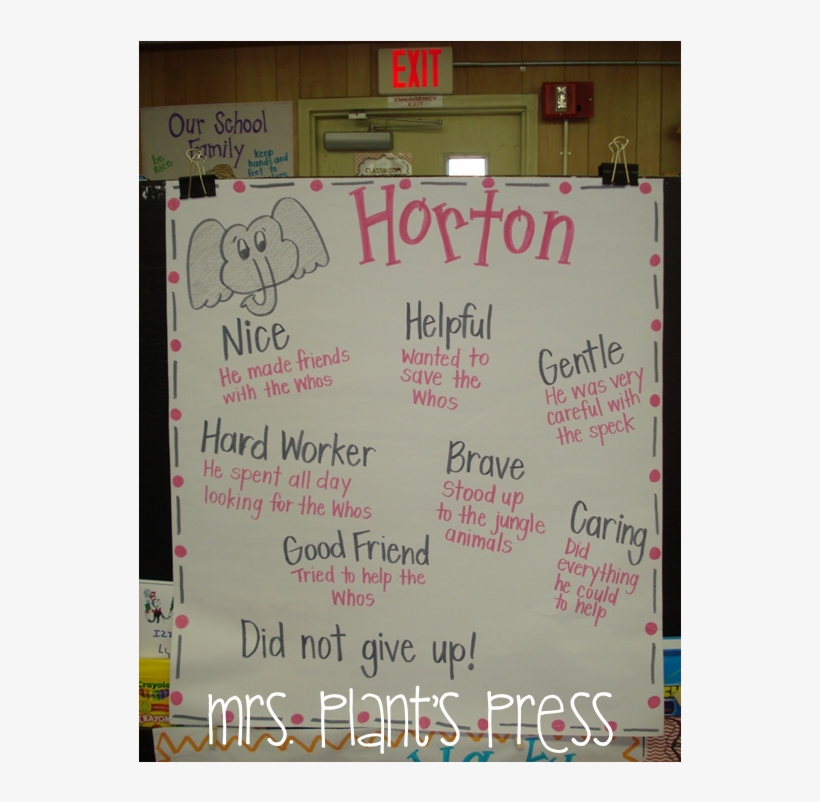 EXIT
EMERGENCY
EXIT
Our School
Family
be
nice
keep
hands and
feet to
CLASSROOM
Horton
Nice
He made friends
with the Whos
Helpful
Wanted to
save the
Whos
Gentle
He was very
careful with
the speck
Hard Worker
He spent all day
looking for the Whos
Brave
Stood up
to the jungle
animals
Caring
Did
everything
he could
to help
Good Friend
Tried to help the
Whos
Did not give up!
mrs. Plant's Press
Crayola